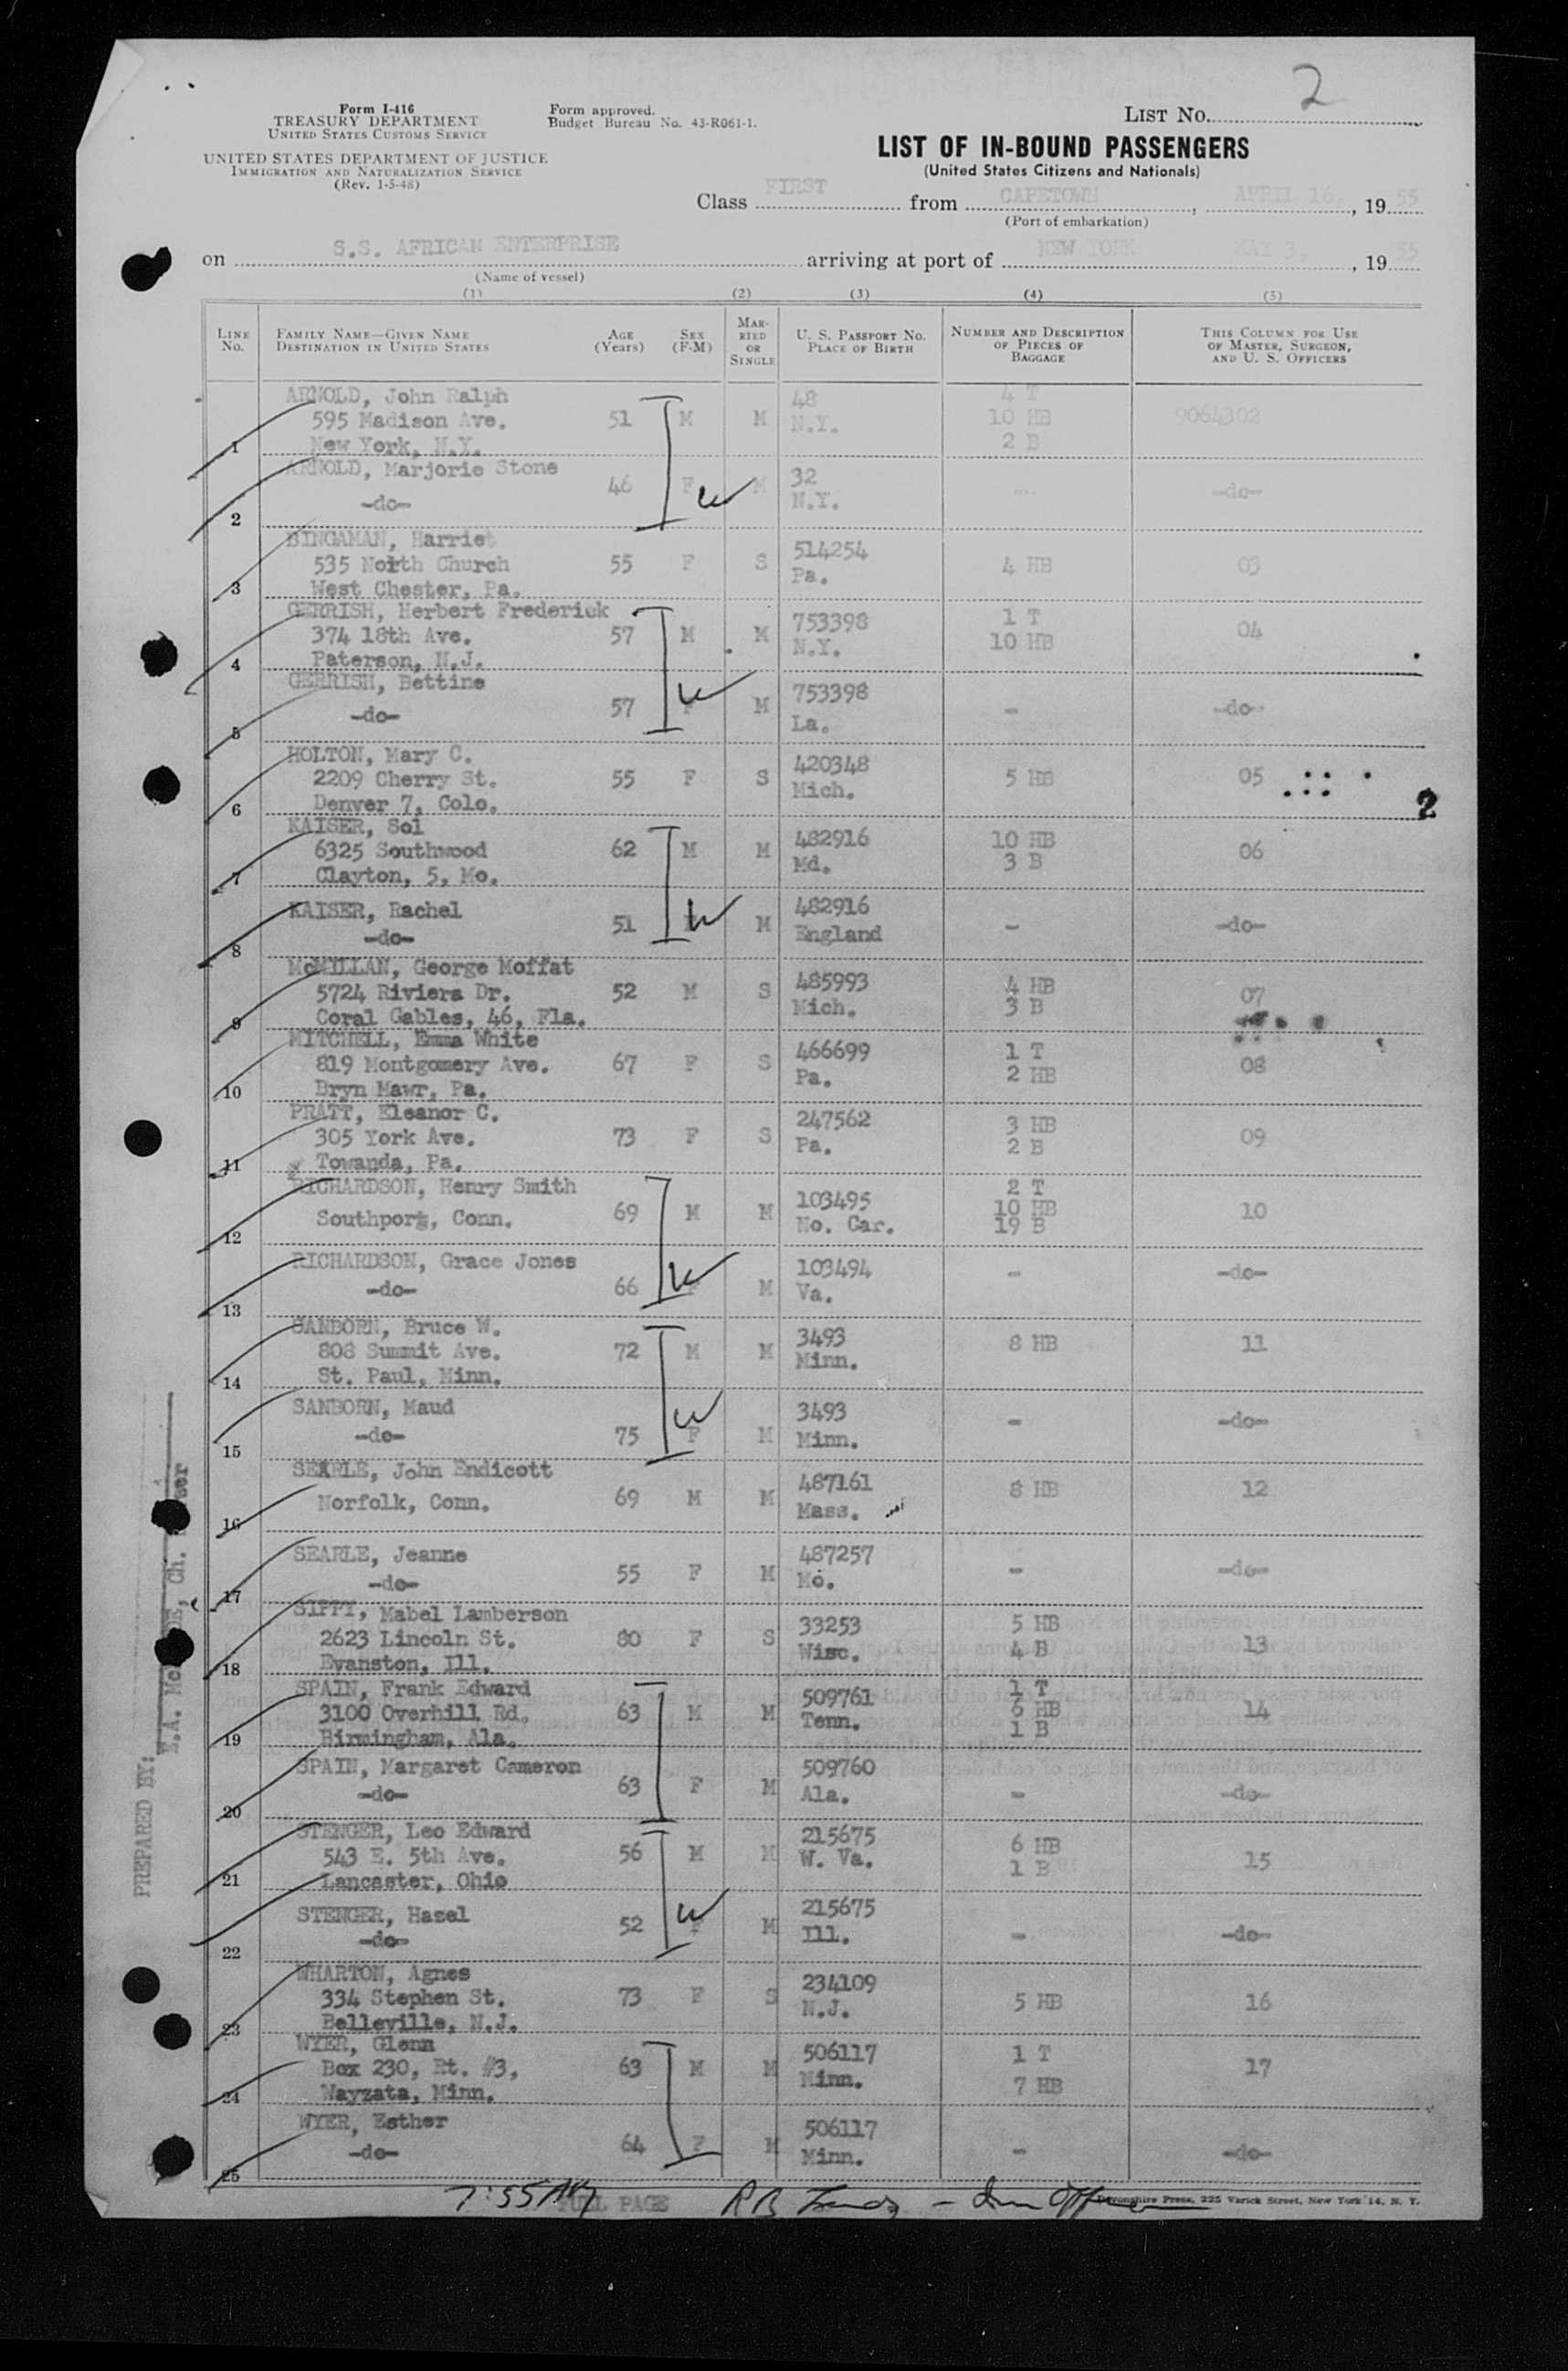 Form I-416
TREASURY DEPARTMENT
UNITED STATES CUSTOMS SERVICE
UNITED STATES DEPARTMENT OF JUSTICE
IMMIGRATION AND NATURALIZATION SERVICE
(Rev. 1-5-48)
Form approved.
Budget Bureau No. 43-R061-1.
LIST NO. 2
LIST OF IN-BOUND PASSENGERS
(United States Citizens and Nationals)
Class FIRST from CAPETOWN, APRIL 16, 1955
(Port of embarkation)
on S.S. AFRICAN ENTERPRISE arriving at port of NEW YORK MAY 3, 1955
(Name of vessel)
(1) (2) (3) (4) (5)
LINE NO. FAMILY NAME—GIVEN NAME DESTINATION IN UNITED STATES AGE (Years) SEX (F-M) MARRIED OR SINGLE U. S. PASSPORT NO. PLACE OF BIRTH NUMBER AND DESCRIPTION OF PIECES OF BAGGAGE THIS COLUMN FOR USE OF MASTER, SURGEON, AND U. S. OFFICERS
ARNOLD, John Ralph 48 4 T
595 Madison Ave. 51 M M N.Y. 10 HB 9064302
1 New York, N.Y. 2 B
ARNOLD, Marjorie Stone 46 F M 32 -- -do-
2 -do- N.Y.
BINGAMAN, Harriet 514254
535 North Church 55 F S Pa. 4 HB 03
3 West Chester, Pa.
GERRISH, Herbert Frederick 753398 1 T
374 18th Ave. 57 M M N.Y. 10 HB 04
4 Paterson, N.J.
GERRISH, Bettine 753398
5 -do- 57 F M La. - -do-
HOLTON, Mary C. 420348
2209 Cherry St. 55 F S Mich. 5 HB 05
6 Denver 7, Colo.
2
KAISER, Sol 482916 10 HB
6325 Southwood 62 M M Md. 3 B 06
7 Clayton, 5, Mo.
KAISER, Rachel 482916
8 -do- 51 M England - -do-
McMILLAN, George Moffat 485993 4 HB
5724 Riviera Dr. 52 M S Mich. 3 B 07
9 Coral Gables, 46, Fla.
MITCHELL, Emma White 466699 1 T
819 Montgomery Ave. 67 F S Pa. 2 HB 08
10 Bryn Mawr, Pa.
PRATT, Eleanor C. 247562 3 HB
305 York Ave. 73 F S Pa. 2 B 09
11 Towanda, Pa.
RICHARDSON, Henry Smith 103495 2 T
Southport, Conn. 69 M M No. Car. 10 HB 10
12 19 B
RICHARDSON, Grace Jones 103494 - -do-
13 -do- 66 F M Va.
SANBORN, Bruce W. 3493
808 Summit Ave. 72 M M Minn. 8 HB 11
14 St. Paul, Minn.
SANBORN, Maud 3493
15 -do- 75 F M Minn. - -do-
SEARLE, John Endicott 487161
16 Norfolk, Conn. 69 M M Mass. 8 HB 12
SEARLE, Jeanne 487257
17 -do- 55 F M Mo. - -do-
SIPPY, Mabel Lamberson 33253 5 HB
2623 Lincoln St. 80 F S Wisc. 4 B 13
18 Evanston, Ill.
SPAIN, Frank Edward 509761 1 T
3100 Overhill Rd. 63 M M Tenn. 6 HB 14
19 Birmingham, Ala. 1 B
SPAIN, Margaret Cameron 509760
20 -do- 63 F M Ala. - -do-
STENGER, Leo Edward 215675 6 HB
543 E. 5th Ave. 56 M M W. Va. 1 B 15
21 Lancaster, Ohio
STENGER, Hazel 215675
22 -do- 52 F M Ill. - -do-
WHARTON, Agnes 234109
334 Stephen St. 73 F S N.J. 5 HB 16
23 Belleville, N.J.
WYER, Glenn 506117 1 T
Box 230, Rt. #3, 63 M M Minn. 7 HB 17
24 Wayzata, Minn.
WYER, Esther 506117
25 -do- 64 F M Minn. - -do-
FULL PAGE
Devonshire Press, 225 Varick Street, New York 14, N. Y.
PREPARED BY: